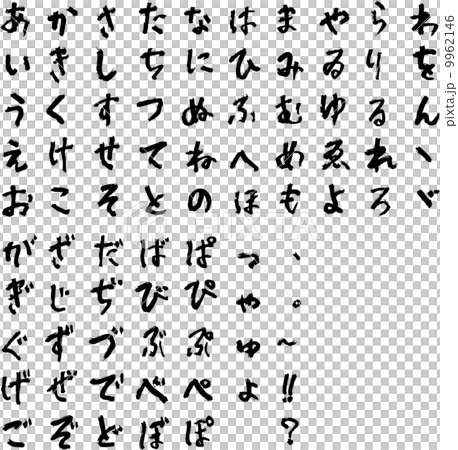 あかさたなはまやらわ
いきしちにひみゐりを
うくすつぬふむゆるん
えけせてねへめゑれヽ
おこそとのほもよろゞ
がざだばぱっ、
ぎじぢびぴゃ。
ぐずづぶぷゅ~
げぜでべぺょ!!
ごぞどぼぽ?
pixta.jp - 9962146
PIXTA